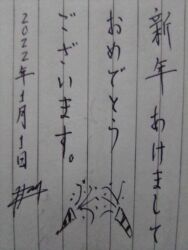 新年あけまして
おめでとう
ございます。
2022年1月1日